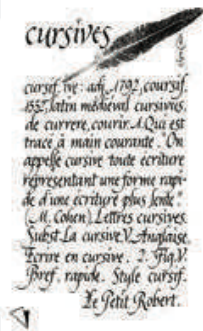 cursives
cursif, ive : adj. 1792, coursif,
1532, latin médiéval cursivus,
de currere, courir. 1. Qui est
tracé à main courante. On
appelle cursive toute écriture
représentant une forme rapi-
de d'une écriture plus lente"
(M. Cohen). Lettres cursives.
Subst. La cursive. V. Anglaise.
Écrire en cursive. 2. Fig. V.
Bref, rapide. Style cursif.
Le Petit Robert.